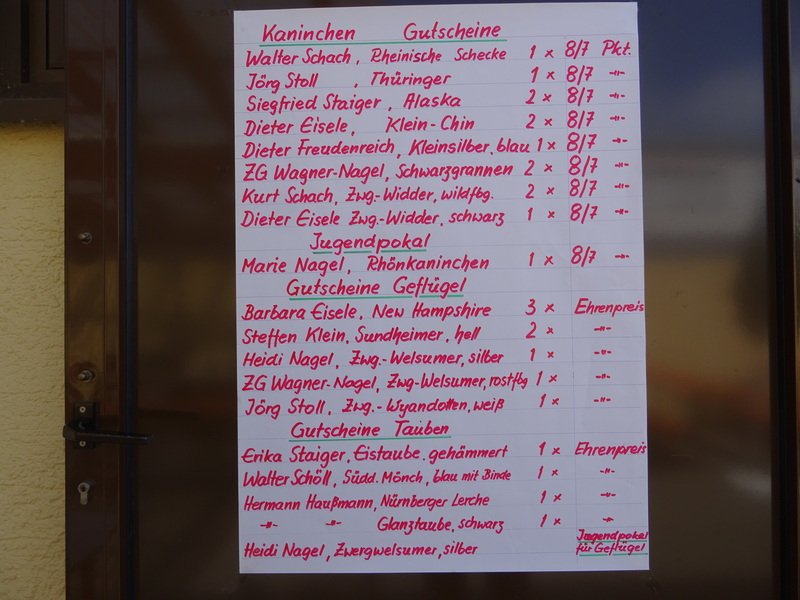 Kaninchen Gutscheine
Walter Schach, Rheinische Schecke 1 x 8/7 Pkt.
Jörg Stoll , Thüringer 1 x 8/7 -"-
Siegfried Staiger, Alaska 2 x 8/7 -"-
Dieter Eisele, Klein-Chin 2 x 8/7 -"-
Dieter Freudenreich, Kleinsilber, blau 1 x 8/7 -"-
ZG Wagner-Nagel, Schwarzgrannen 2 x 8/7 -"-
Kurt Schach, Zwg.-Widder, wildfbg. 2 x 8/7 -"-
Dieter Eisele Zwg.-Widder, schwarz 1 x 8/7 -"-
Jugendpokal
Marie Nagel, Rhönkaninchen 1 x 8/7 -"-
Gutscheine Geflügel
Barbara Eisele, New Hampshire 3 x Ehrenpreis
Steffen Klein, Sundheimer, hell 2 x -"-
Heidi Nagel, Zwg.-Welsumer, silber 1 x -"-
ZG Wagner-Nagel, Zwg-Welsumer, rostfbg 1 x -"-
Jörg Stoll, Zwg.-Wyandotten, weiß 1 x -"-
Gutscheine Tauben
Erika Staiger, Eistaube. gehämmert 1 x Ehrenpreis
Walter Schöll, Südd. Mönch, blau mit Binde 1 x -"-
Hermann Haußmann, Nürnberger Lerche 1 x -"-
-"- -"- Glanztaube, schwarz 1 x -"-
Heidi Nagel, Zwergwelsumer, silber Jugendpokal
für Geflügel